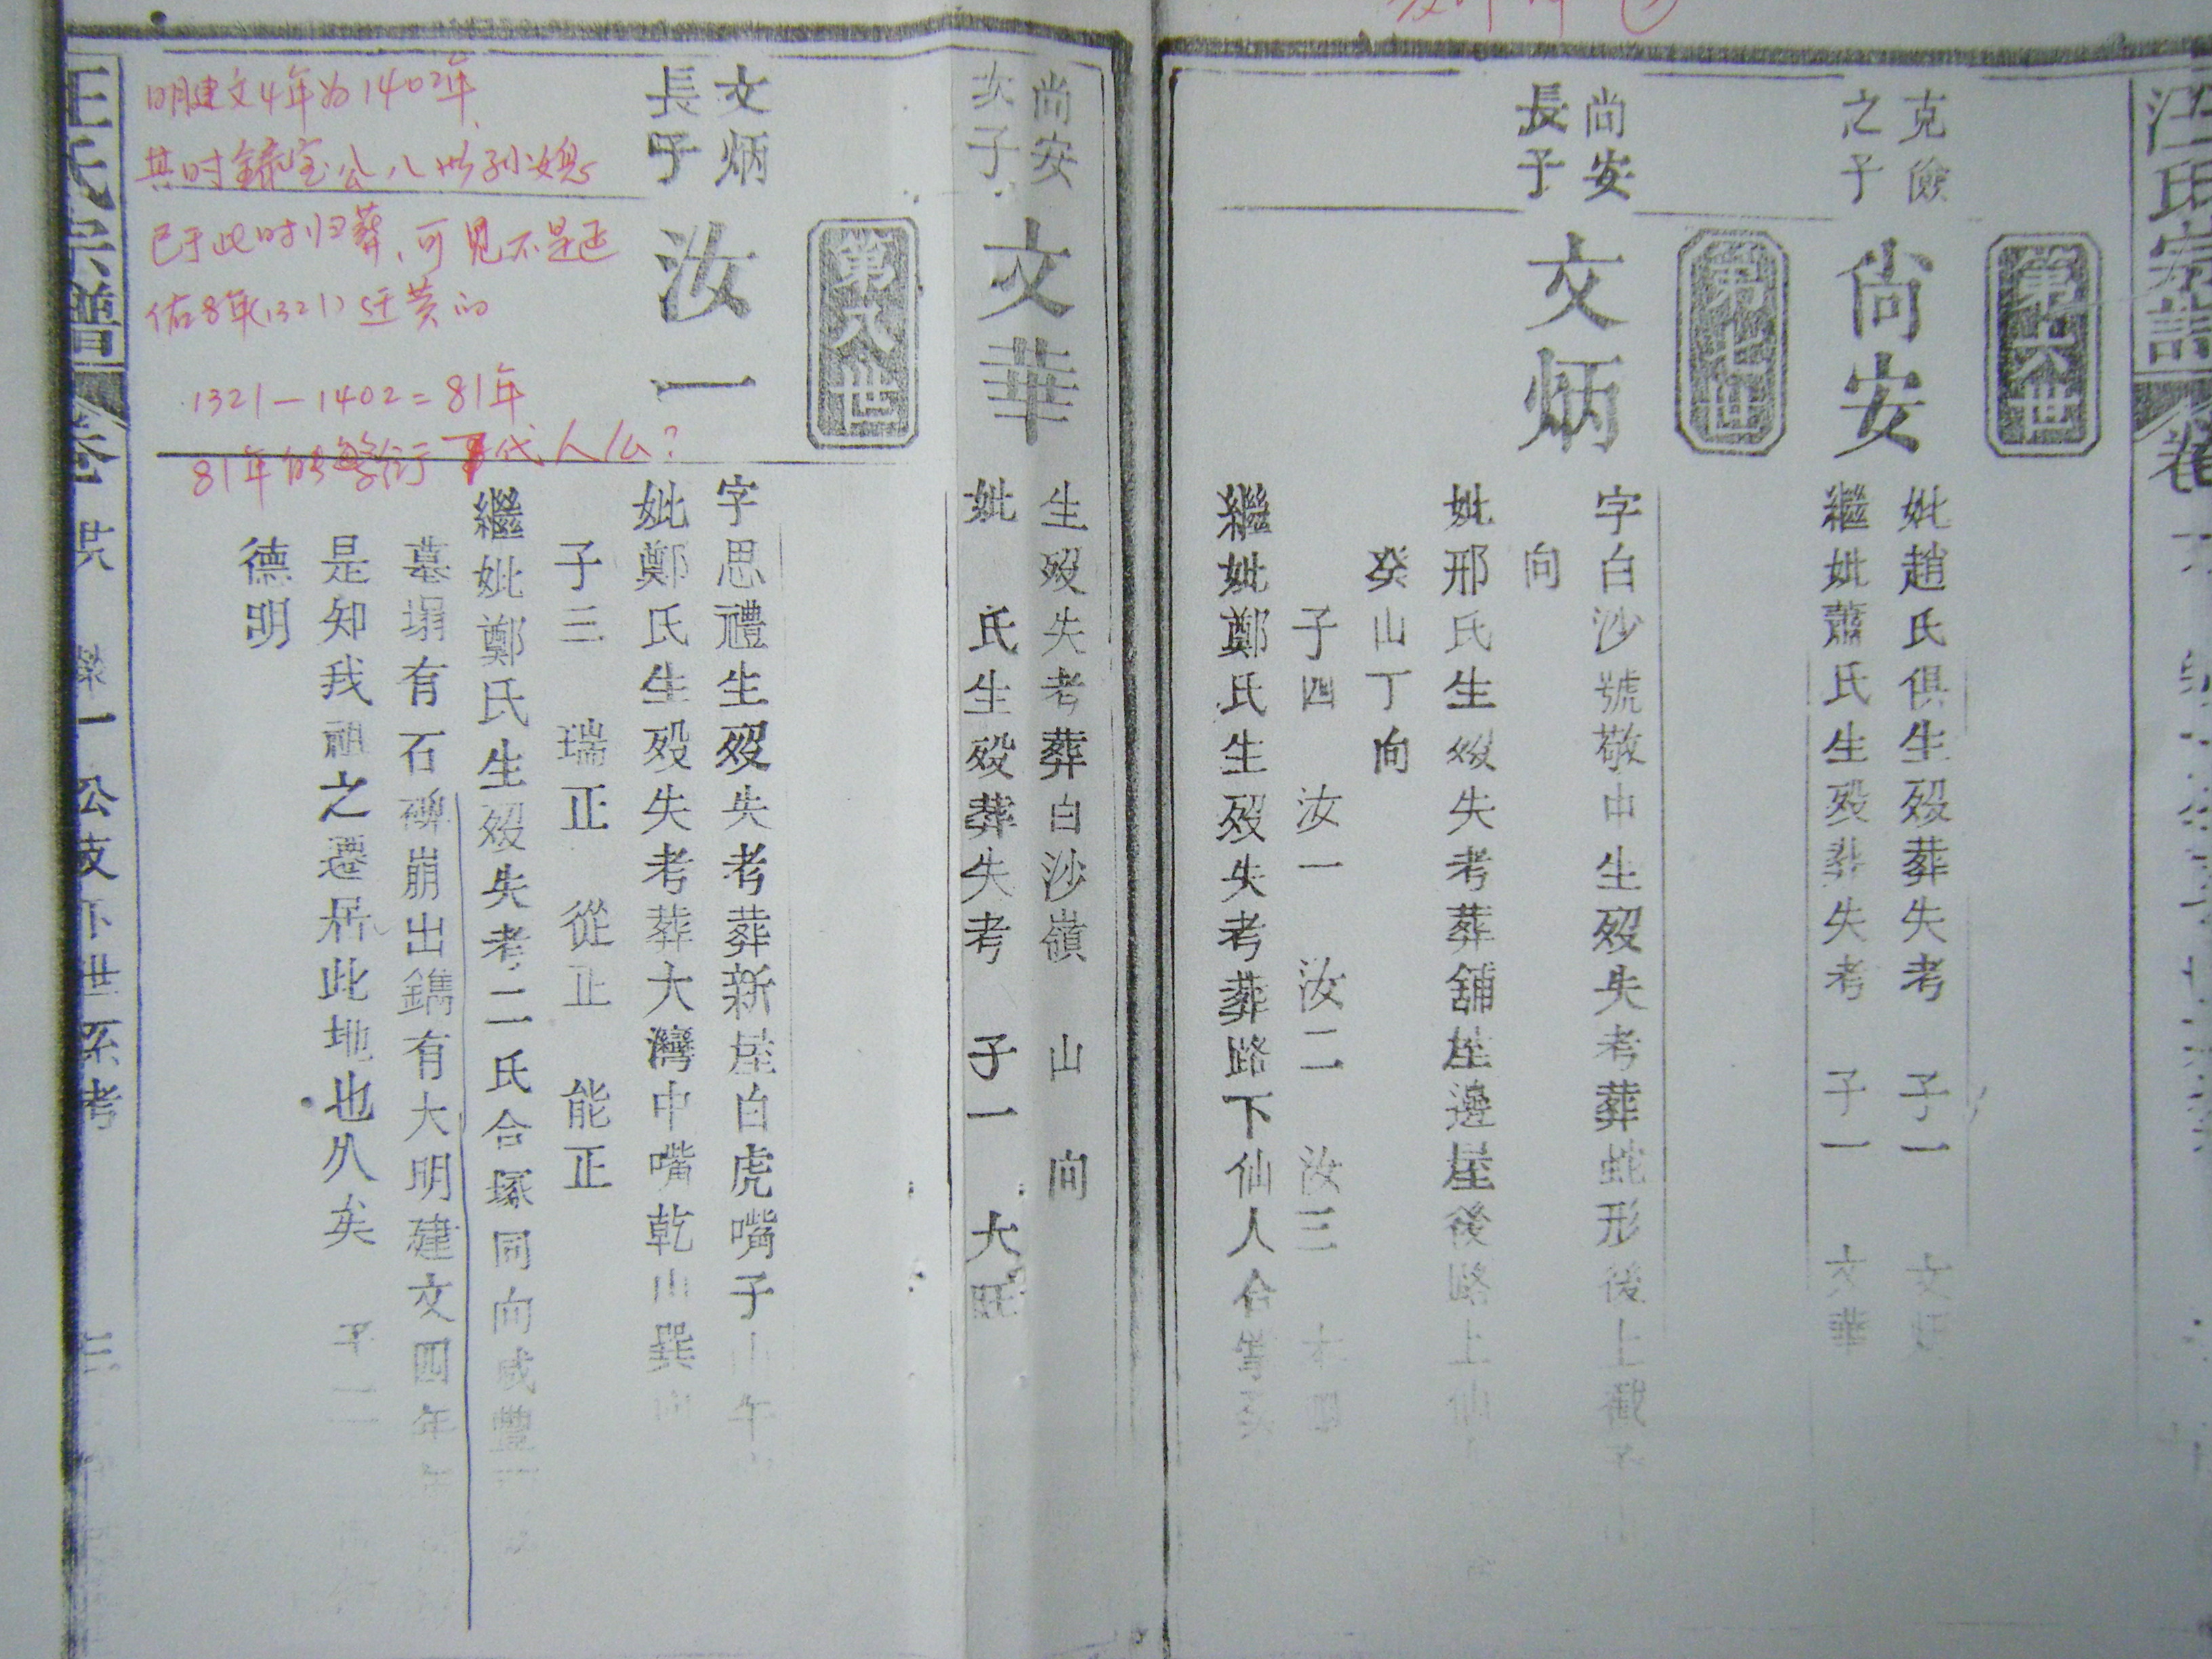 江氏宗譜 卷
第六世
克儉
之子
尚安
妣趙氏俱生歿葬失考 子一 文炳
繼妣蕭氏生歿葬失考 子一 文華
第七世
尚安
長子
文炳
字白沙號敬中生歿失考葬蛇形後上截
向
妣邢氏生歿失考葬舖坐邊屋後路上仙
癸山丁向
子四 汝一 汝二 汝三
繼妣鄭氏生歿失考葬路下仙人合
尚安
次子
文華
生歿失考葬白沙嶺 山 向
妣 氏生歿葬失考 子一 大旺
第八世
文炳
長子
汝一
字思禮生歿失考葬新屋白虎嘴子山午
妣鄭氏生歿失考葬大灣中嘴乾山巽向
子三 瑞正 從正 能正
繼妣鄭氏生歿失考二氏合塚同向咸豐
墓塌有石碑崩出鐫有大明建文四年
是知我祖之遷居此地也久矣 子一
德明
明建文4年为1402年
其时 公八世孙媳
已于此时归葬,可见不是延
佑8年(1321)迁黄的
1321-1402=81年
81年能繁衍 代人么?
公 下世系考